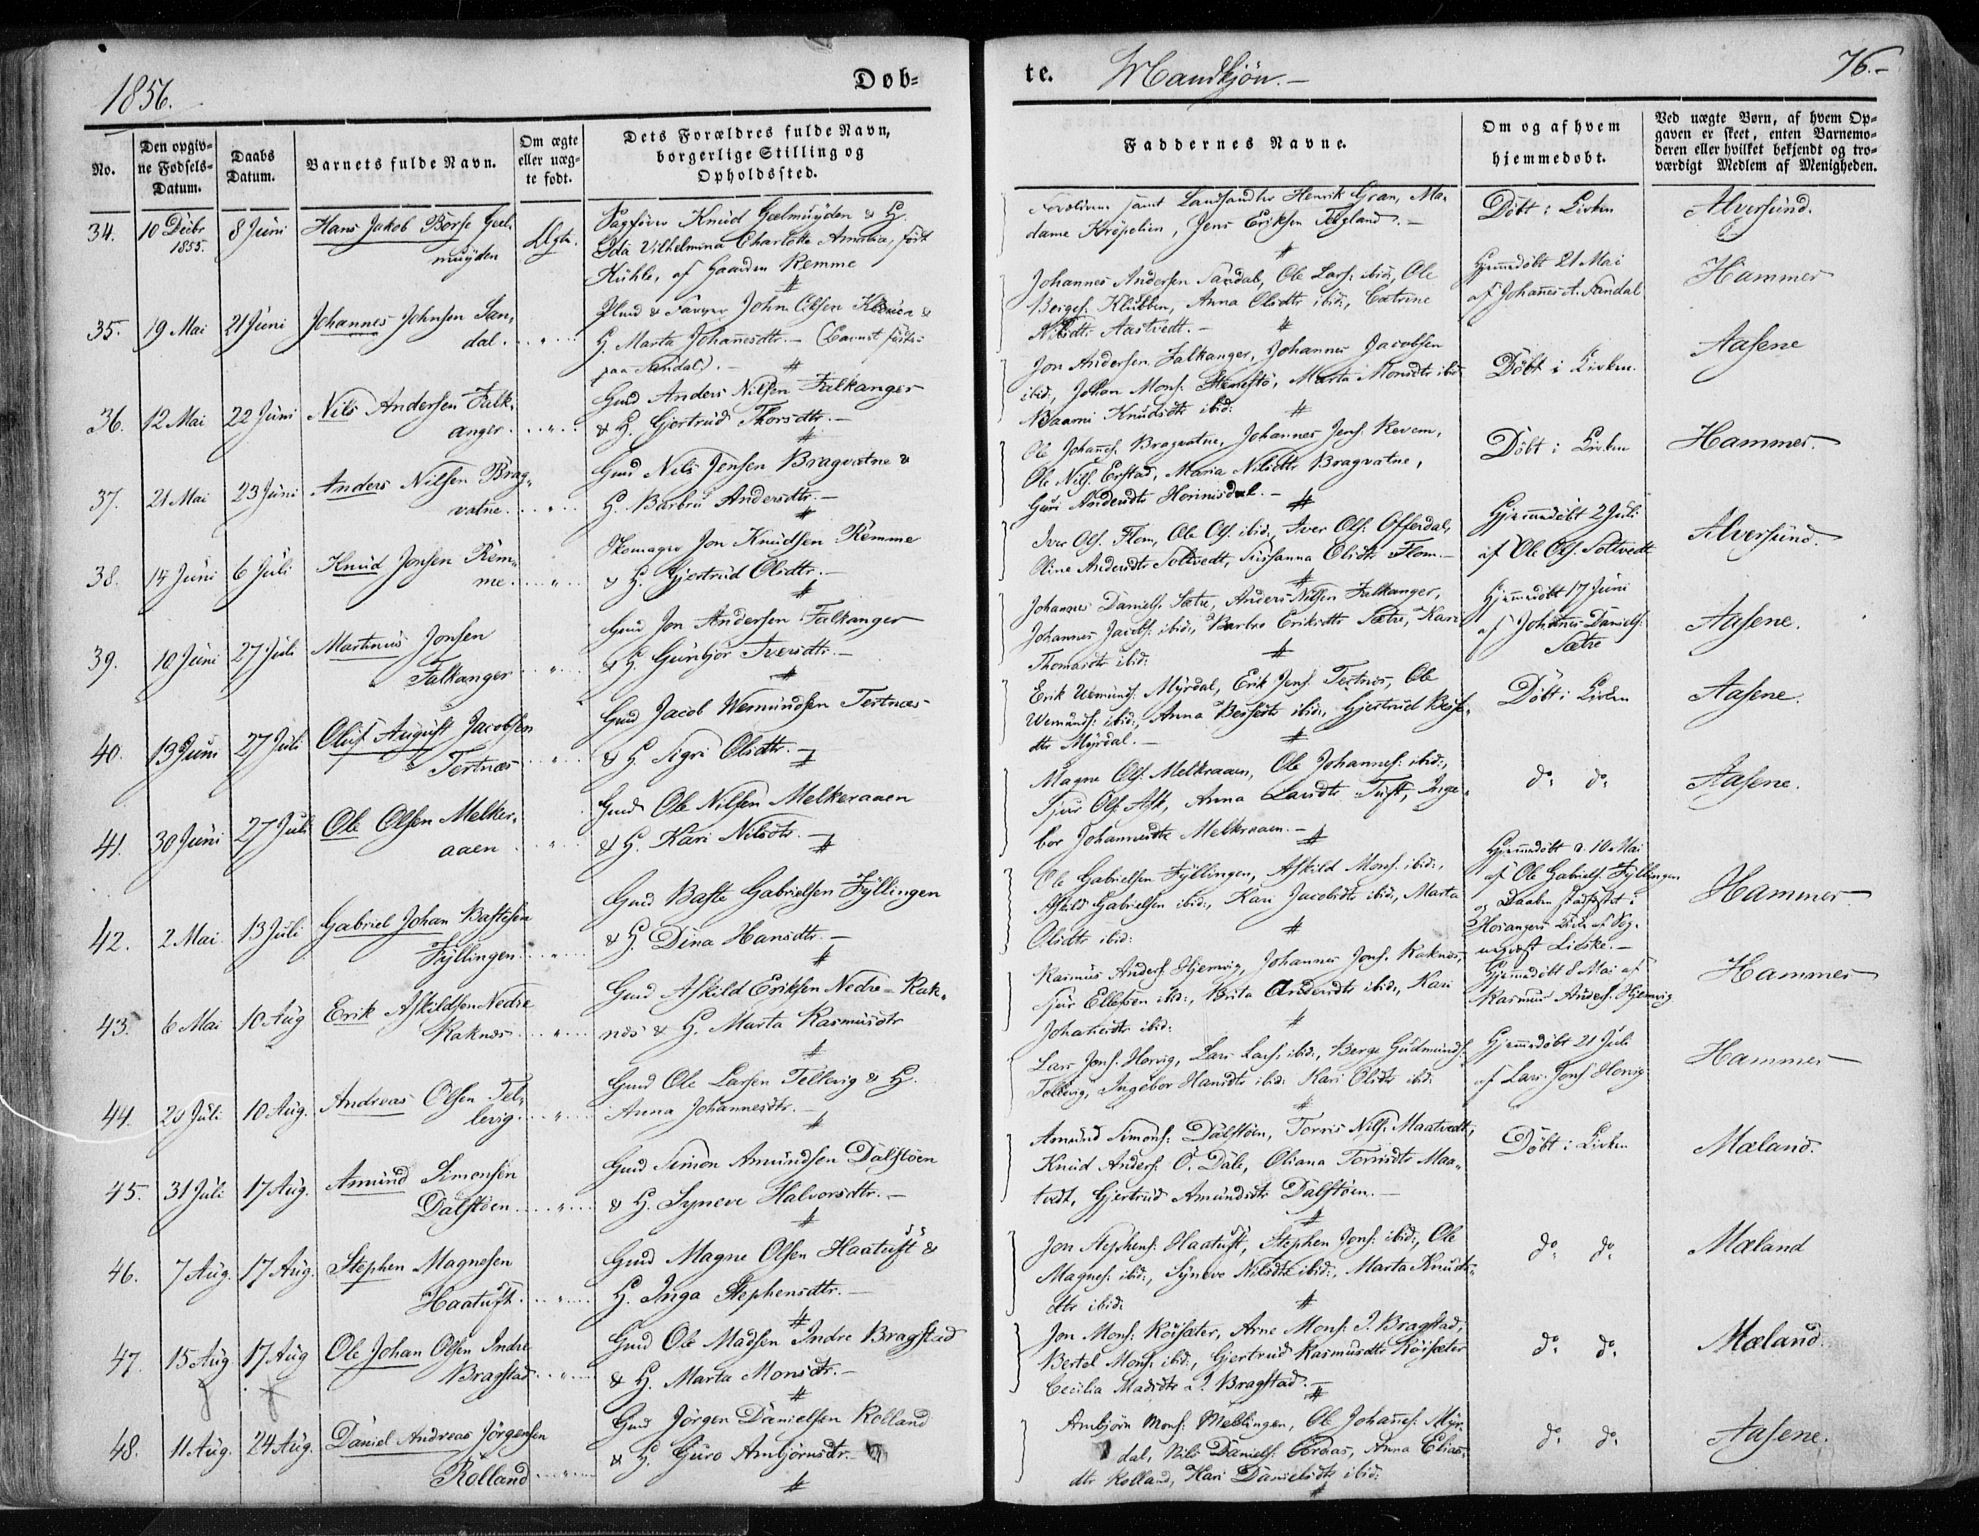 1856.
Døb-
te. Mandkjøn.-
76.-
No.
Den opgiv-
ne Fødsels-
Datum.
Daabs
Datum.
Barnets fulde Navn.
Om ægte
eller uæg-
te født.
Dets Forældres fulde Navn,
borgerlige Stilling og
Opholdssted.
Faddernes Navne.
Om og af hvem
hjemmedøbt.
Ved uægte Børn, af hvem Op-
gaven er skeet, enten Barnemo-
deren eller hvilket bekjendt og tro-
værdigt Medlem af Menigheden.
34. 10 Decbr 1855. 8 Juni
Hans Jakob Børse Geel-
muyden
Ægte.
Sagfører Knud Geelmuyden & H.
Ida Vilhelmina Charlotte Amalia, født
Kühle, af Gaarden Remme
Forældrene samt Landhandler Henrik Gran, Ma-
dame Kröpelien, Jens Eriksen Tegland.-
Døbt i Kirken
Alversund.
35. 19 Mai 21 Juni
Johannes Johnsen San-
dal.
Hmd & Farver John Olsen &
H. Marta Johannesdtr.- (Barnet født
paa Sandal).-
Johannes Andersen Sandal, Ole Lars. ibid., Ole
Berges. Klubben, Anna Olsdtr ibid., Catrine
Nilsdtr Aastvedt.-
Hjemmedøbt 21 Mai
af Johannes A. Sandal
Hammer
36. 12 Mai 22 Juni
Nils Andersen Falk-
anger
Gmd Anders Nilsen Falkanger
& H. Gjertrud Thorsdtr.-
Jon Andersen Falkanger, Johannes Jacobsen
ibid., Johan Mons. Steinestø, Marta Monsdtr ibid.
Knudsdtr ibid:
Døbt i Kirken.
Aasene
37. 21 Mai 23 Juni
Anders Nilsen Brag-
vatne.
Gmd Nils Jensen Bragvatne &
H. Barbru Andersdtr.-
Ole Johans. Bragvatne, Johannes Jens. Revem,
Ole Nils. Erstad, Maria Nilsdtr Bragvatne,
Guri Andersdtr Horinisdal.-
Døbt i Kirken
Hammer.
38. 14 Juni 6 Juli
Knud Jonsen Rem-
me.
Skomager Jon Knudsen Remme
& H. Gjertrud Olsdtr.-
Iver Ols. Flom, Ole Ols. ibid., Iver Ols. Offerdal,
Oline Andersdtr Soltvedt, Susanna Olsdtr Flom.-
Hjemmedøbt 2 Juli
af Ole Ols. Soltvedt
Alversund.
39. 10 Juni 27 Juli
Martinus Jonsen
Falkanger
Gmd Jon Andersen Falkanger
& H. Gunbjør Iversdtr.-
Johannes Daniels. Sætre, Anders Nilsen Falkanger,
Johannes Jacobs. ibid., Barbro Eriksdtr Sætre, Kari
Thomasdtr ibid.
Hjemmedøbt 17 Juni
af Johannes Daniels.
Sætre
Aasene.
40. 13 Juni 27 Juli
Oluf August Jacobsen
Tertnæs
Gmd Jacob Wemundsen Tertnæs
& H. Sigri Olsdtr.-
Erik Wemunds. Myrdal, Erik Jens. Tertnes, Ole
Wemunds. ibid., Anna Beisedtr ibid., Gjertrud Beise-
dtr Myrdal.-
Døbt i Kirken
Aasene.
41. 30 Juni 27 Juli
Ole Olsen Melker-
aaen
Gmd Ole Nilsen Melkeraaen
& H. Kari Nilsdtr.-
Magne Ols. Melkraaen, Ole Johannes. ibid.,
Sjur Ols. Ask, Anna Larsdtr Tuft, Inge-
bor Johannesdtr Melkraaen.-
do. do.
Aasene.
42. 2 Mai 13 Juli
Gabriel Johan Bastesen
Fyllingen
Gmd Baste Gabrielsen Fyllingen
& H. Dina Hansdtr.-
Ole Gabrielsen Fyllingen, Askild Mons. ibid.,
Askild Gabrielsen ibid., Kari Jacobsdtr ibid., Marta
Olsdtr ibid:
Hjemmedøbt d. 10 Mai
af Ole Gabriels. Fyllingen
og Daaben stadfæstet i
Hosangers Kirke af Sog-
nepræst Lidske.-
Hammer
43. 6 Mai 10 Aug
Erik Askildsen Nedre
Raknes
Gmd Askild Eriksen Nedre-Rak-
nes & H. Marta Rasmusdtr
Rasmus Anders. Hjemvig, Johannes Jons. Raknes,
Sjur Ellefsen ibid., Brita Andersdtr ibid., Kari
Johannesdtr ibid:
Hjemmedøbt 8 Mai af
Rasmus Anders. Hjemvig
Hammer
44. 20 Juli 10 Aug.
Andreas Olsen Tel-
levig
Gmd Ole Larsen Tellevig & H.
Anna Johannesdtr.-
Lars Jons. Horvig, Lars Lars. ibid., Berge Gudmunds.
Tellevig, Ingebor Hansdtr ibid. Kari Olsdtr ibid.
Hjemmedøbt 21 Juli
af Lars Jons. Horvig
Hammer
45. 31 Juli 17 Aug.
Amund Simonsen
Dalstøen
Gmd Simon Amundsen Dalstøen
& H. Syneve Halvorsdtr.-
Amund Simons. Dalstøen, Torris Nils. Maatvedt,
Knud Anders. Ö. Dale, Oliana Torrisdtr Maa-
tvedt, Gjertrud Amundsdtr Dalstøen.-
Døbt i Kirken
Mæland.
46. 7 Aug. 17 Aug.
Stephen Magnesen
Haatuft
Gmd Magne Olsen Haatuft &
H. Inga Stephensdtr.
Jon Stephens. Haatuft, Stephen Jons. ibid., Ole
Magnes. ibid., Syneve Nilsdtr ibid., Marta Knuds-
dtr ibid:
do. do.
Mæland
47. 15 Aug 17 Aug
Ole Johan Olsen Indre
Bragstad
Gmd Ole Madsen Indre Bragstad
& H. Marta Monsdtr.-
Jon Mons. Röisæter, Arne Mons. I. Bragstad,
Bertel Mons. ibid., Gjertrud Rasmusdtr Röisæter
Cecilia Madsdtr I. Bragstad.-
do. do.
Mæland.
48. 11 Aug. 24 Aug.
Daniel Andreas Jörgensen
Rolland
Gmd Jörgen Danielsen Rolland
& H. Guro Ambjörnsdtr.
Ambjörn Mons. Mellingen, Ole Johannes. Myr-
dal, Nils Daniels. Aarnaas, Anna Elias-
dtr Rolland, Kari Danielsdtr ibid:
do. do.
Aasene.